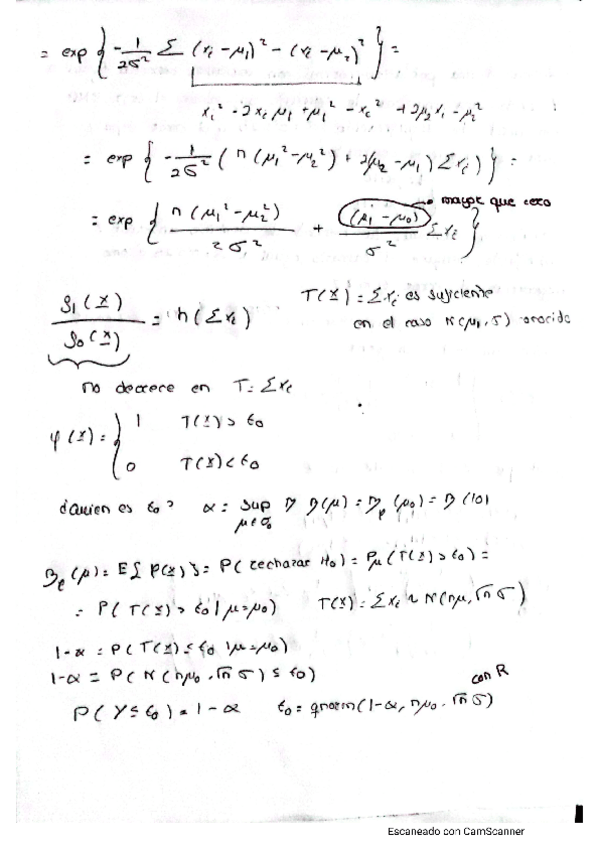 = exp { -1/2σ² Σ (xi - μ1)² - (xi - μ2)² } =
xi² - 2xi μ1 + μ1² - xi² + 2μ2 xi - μ2²
= exp { -1/2σ² ( n (μ1² - μ2²) + 2(μ2 - μ1) Σxi ) } =
mayor que cero
= exp { n (μ1² - μ2²) / 2σ² + (μ1 - μ0) / σ² Σxi }
f1(x) / f0(x) = h(Σxi)
T(x) = Σxi es suficiente
en el caso N(μ, σ) conocida
no decrece en T = Σxi
φ(x) = { 1 T(x) > t0
0 T(x) < t0
¿quien es t0? α = sup β(μ) = β(μ0) = β(10)
μ ∈
β(μ) = E{φ(x)} = P(rechazar H0) = Pμ(T(x) > t0) =
= P(T(x) > t0 | μ = μ0) T(x) = Σxi ~ N(nμ, √n σ)
1-α = P(T(x) ≤ t0 | μ = μ0)
1-α = P(N(nμ0, √n σ) ≤ t0)
con R
P(Y ≤ t0) = 1-α t0 = qnorm(1-α, nμ0, √n σ)
Escaneado con CamScanner